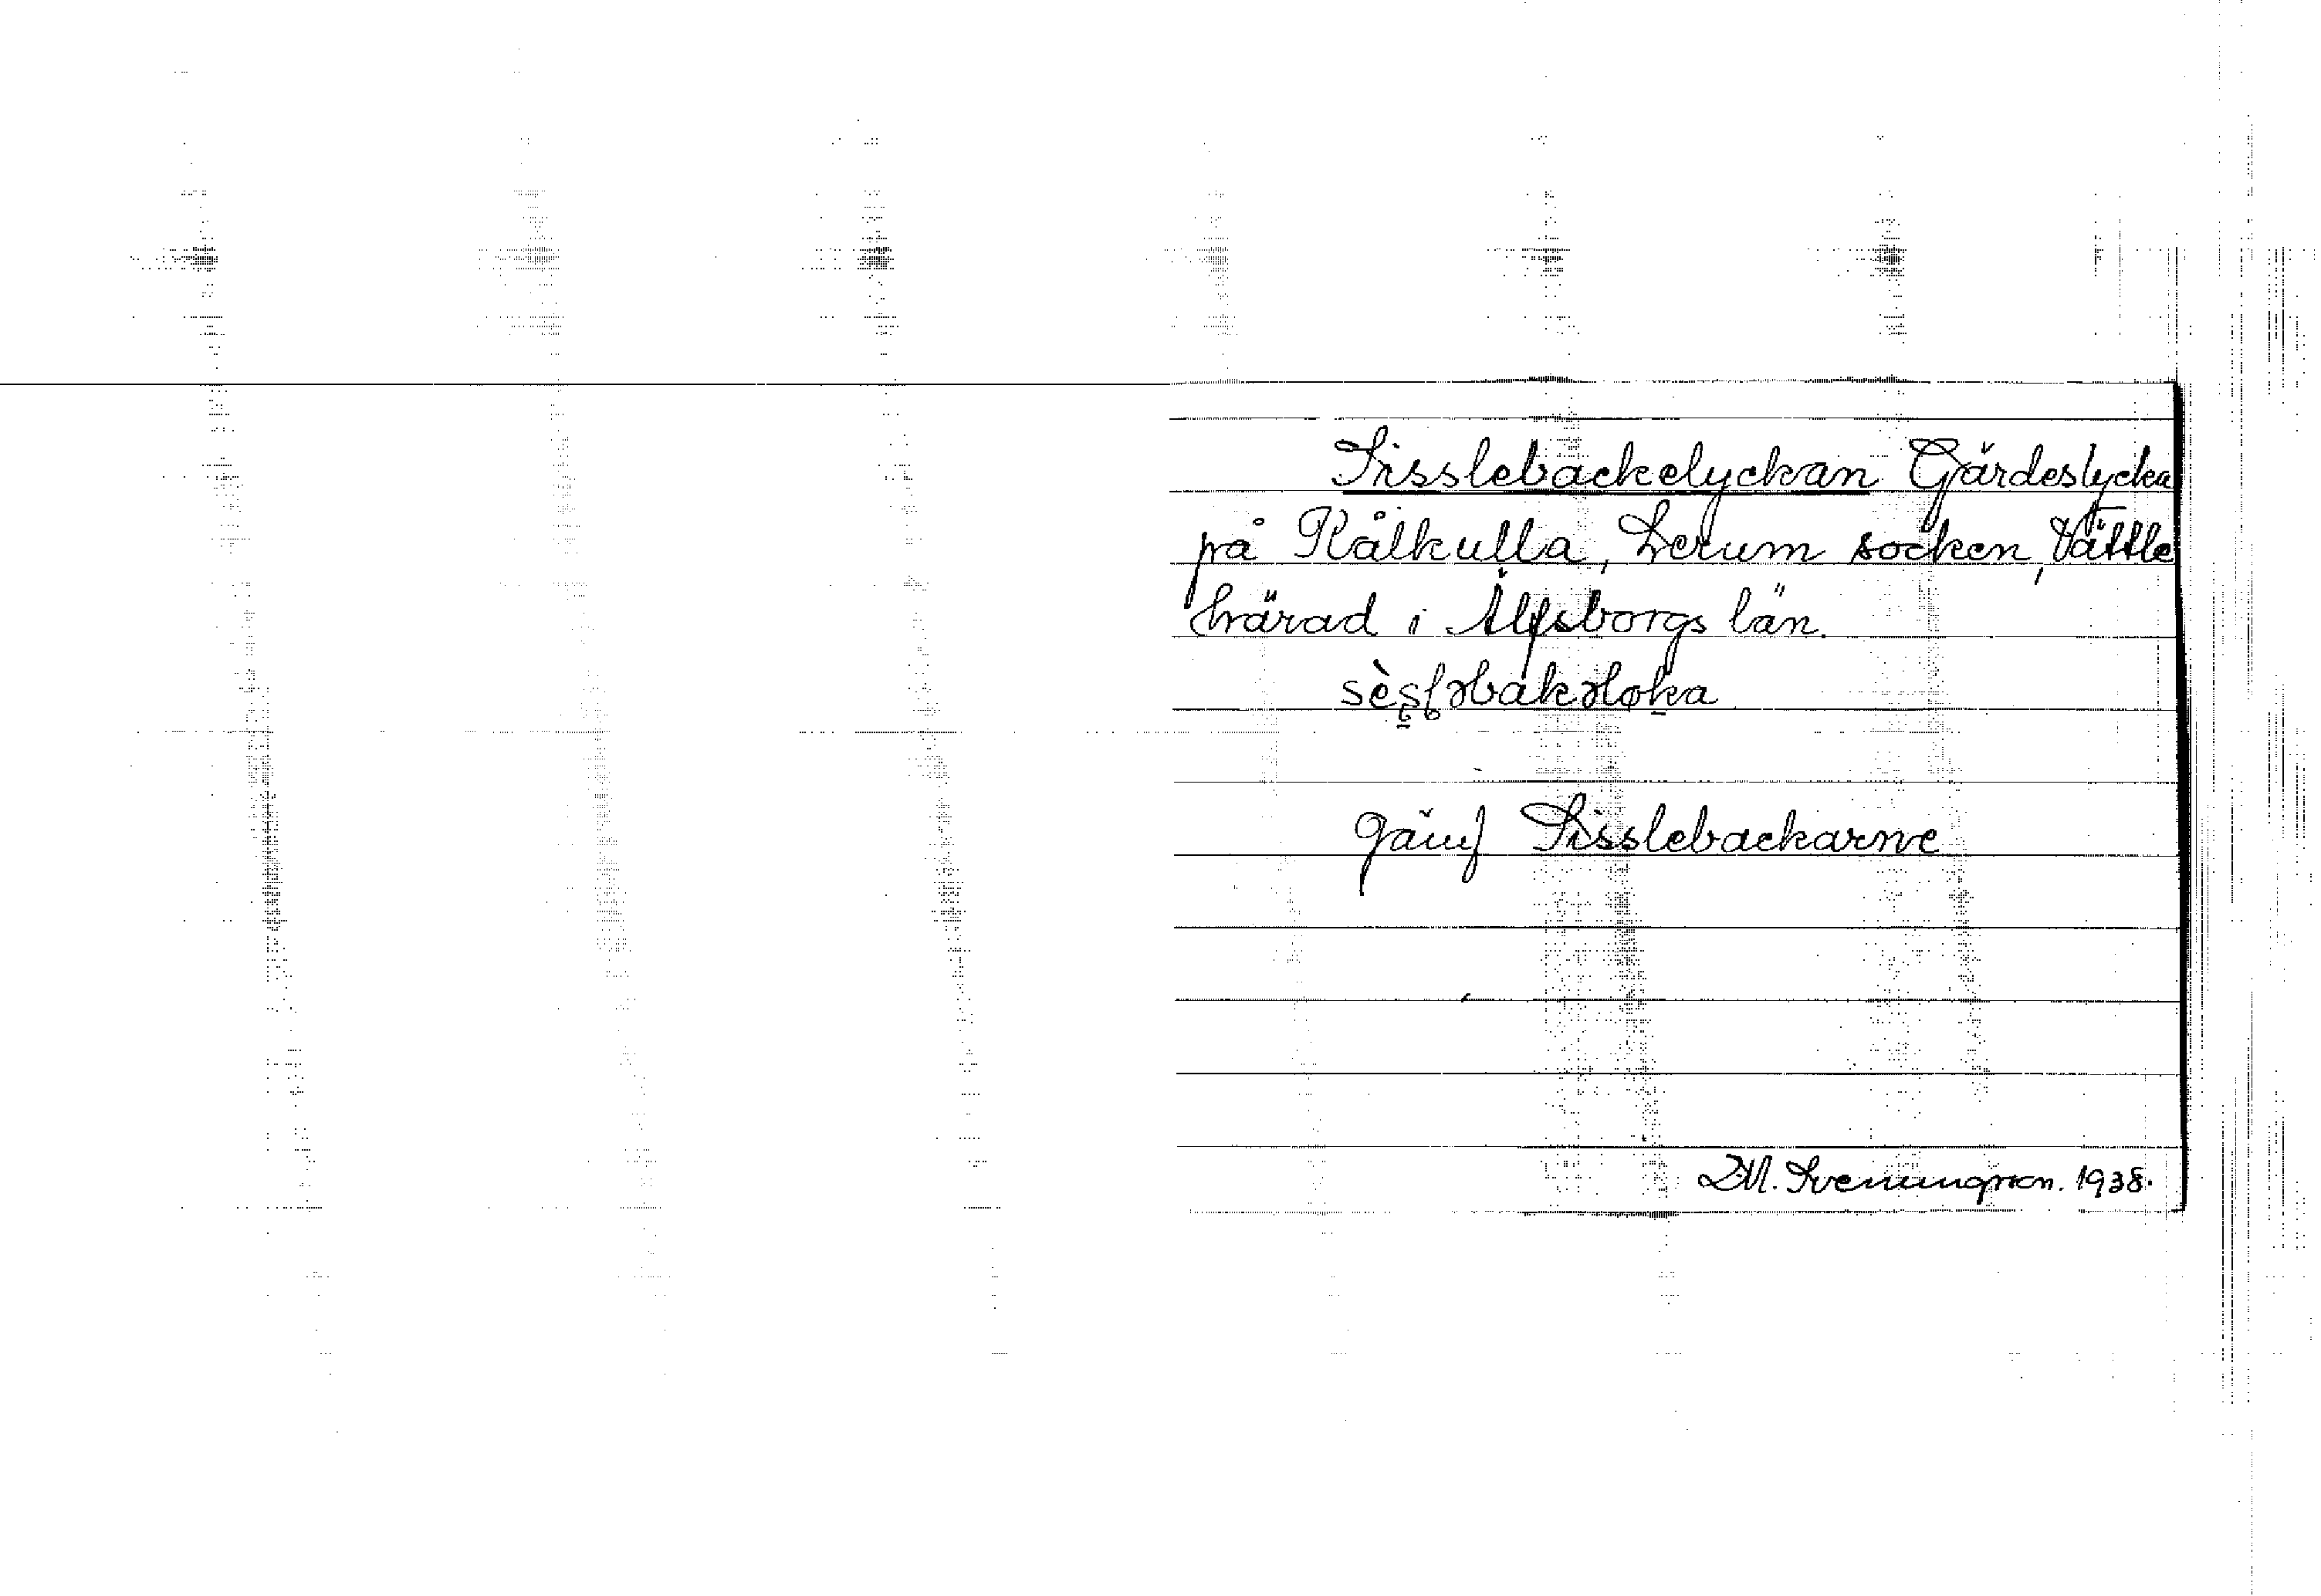 Sisslebackelyckan Gärdeslycka
på Kålkulla, Lerum socken, Vättle
härad i Älfsborgs län.
sèsləbakələka
Jämf Sisslebackarne
D.M. Svenungsson. 1938.